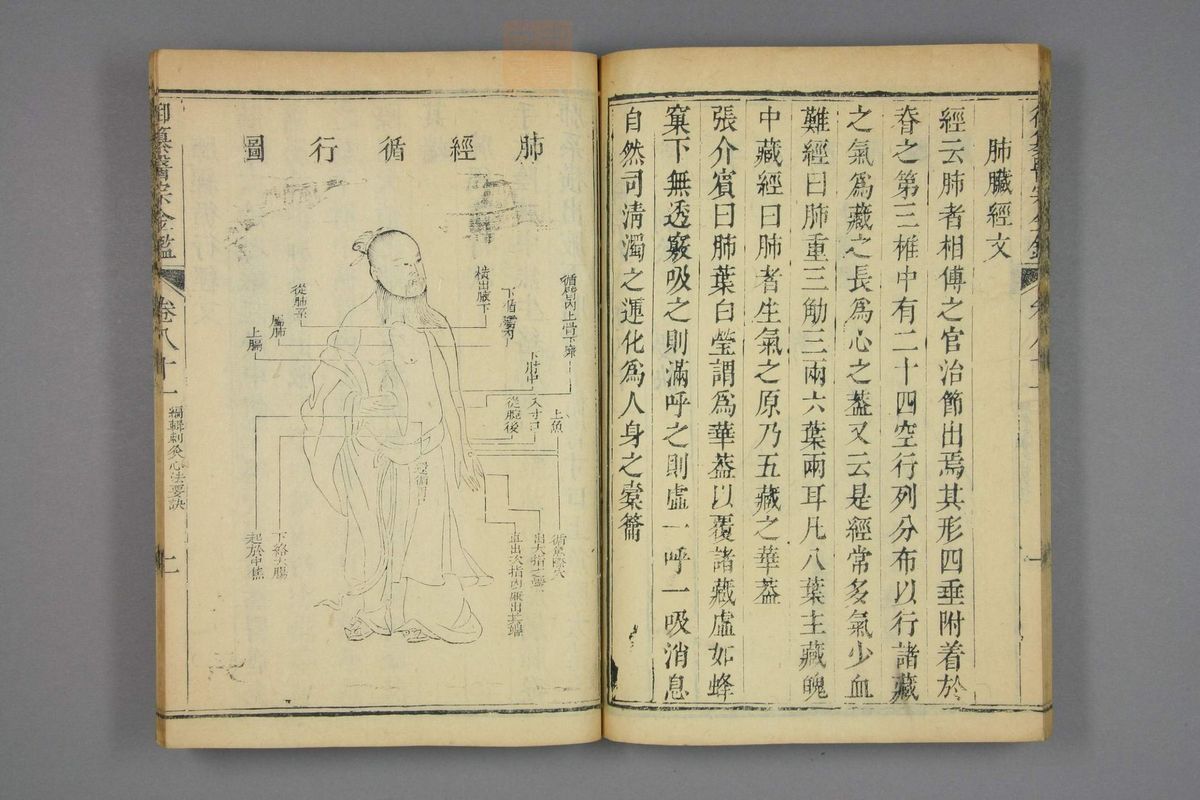 肺臟經文
經云肺者相傅之官治節出焉其形四垂附着於
脊之第三椎中有二十四空行列分布以行諸藏
之氣爲藏之長爲心之葢又云是經常多氣少血
難經曰肺重三觔三兩六葉兩耳凡八葉主藏魄
中藏經曰肺者生氣之原乃五藏之華葢
張介賓曰肺葉白瑩謂爲華葢以覆諸藏虛如蜂
窠下無透竅吸之則滿呼之則虛一呼一吸消息
自然司清濁之運化爲人身之橐籥
肺經循行圖
循臂內上骨下廉
下循臑內
橫出腋下
從肺系
屬肺
上膈
下肘中
上魚
入寸口
從腕後
還循胃口
循魚際穴
出大指之端
直出次指內廉出其端
下絡大腸
起於中焦
御纂醫宗金鑑
卷八十一
編輯刺灸心法要訣